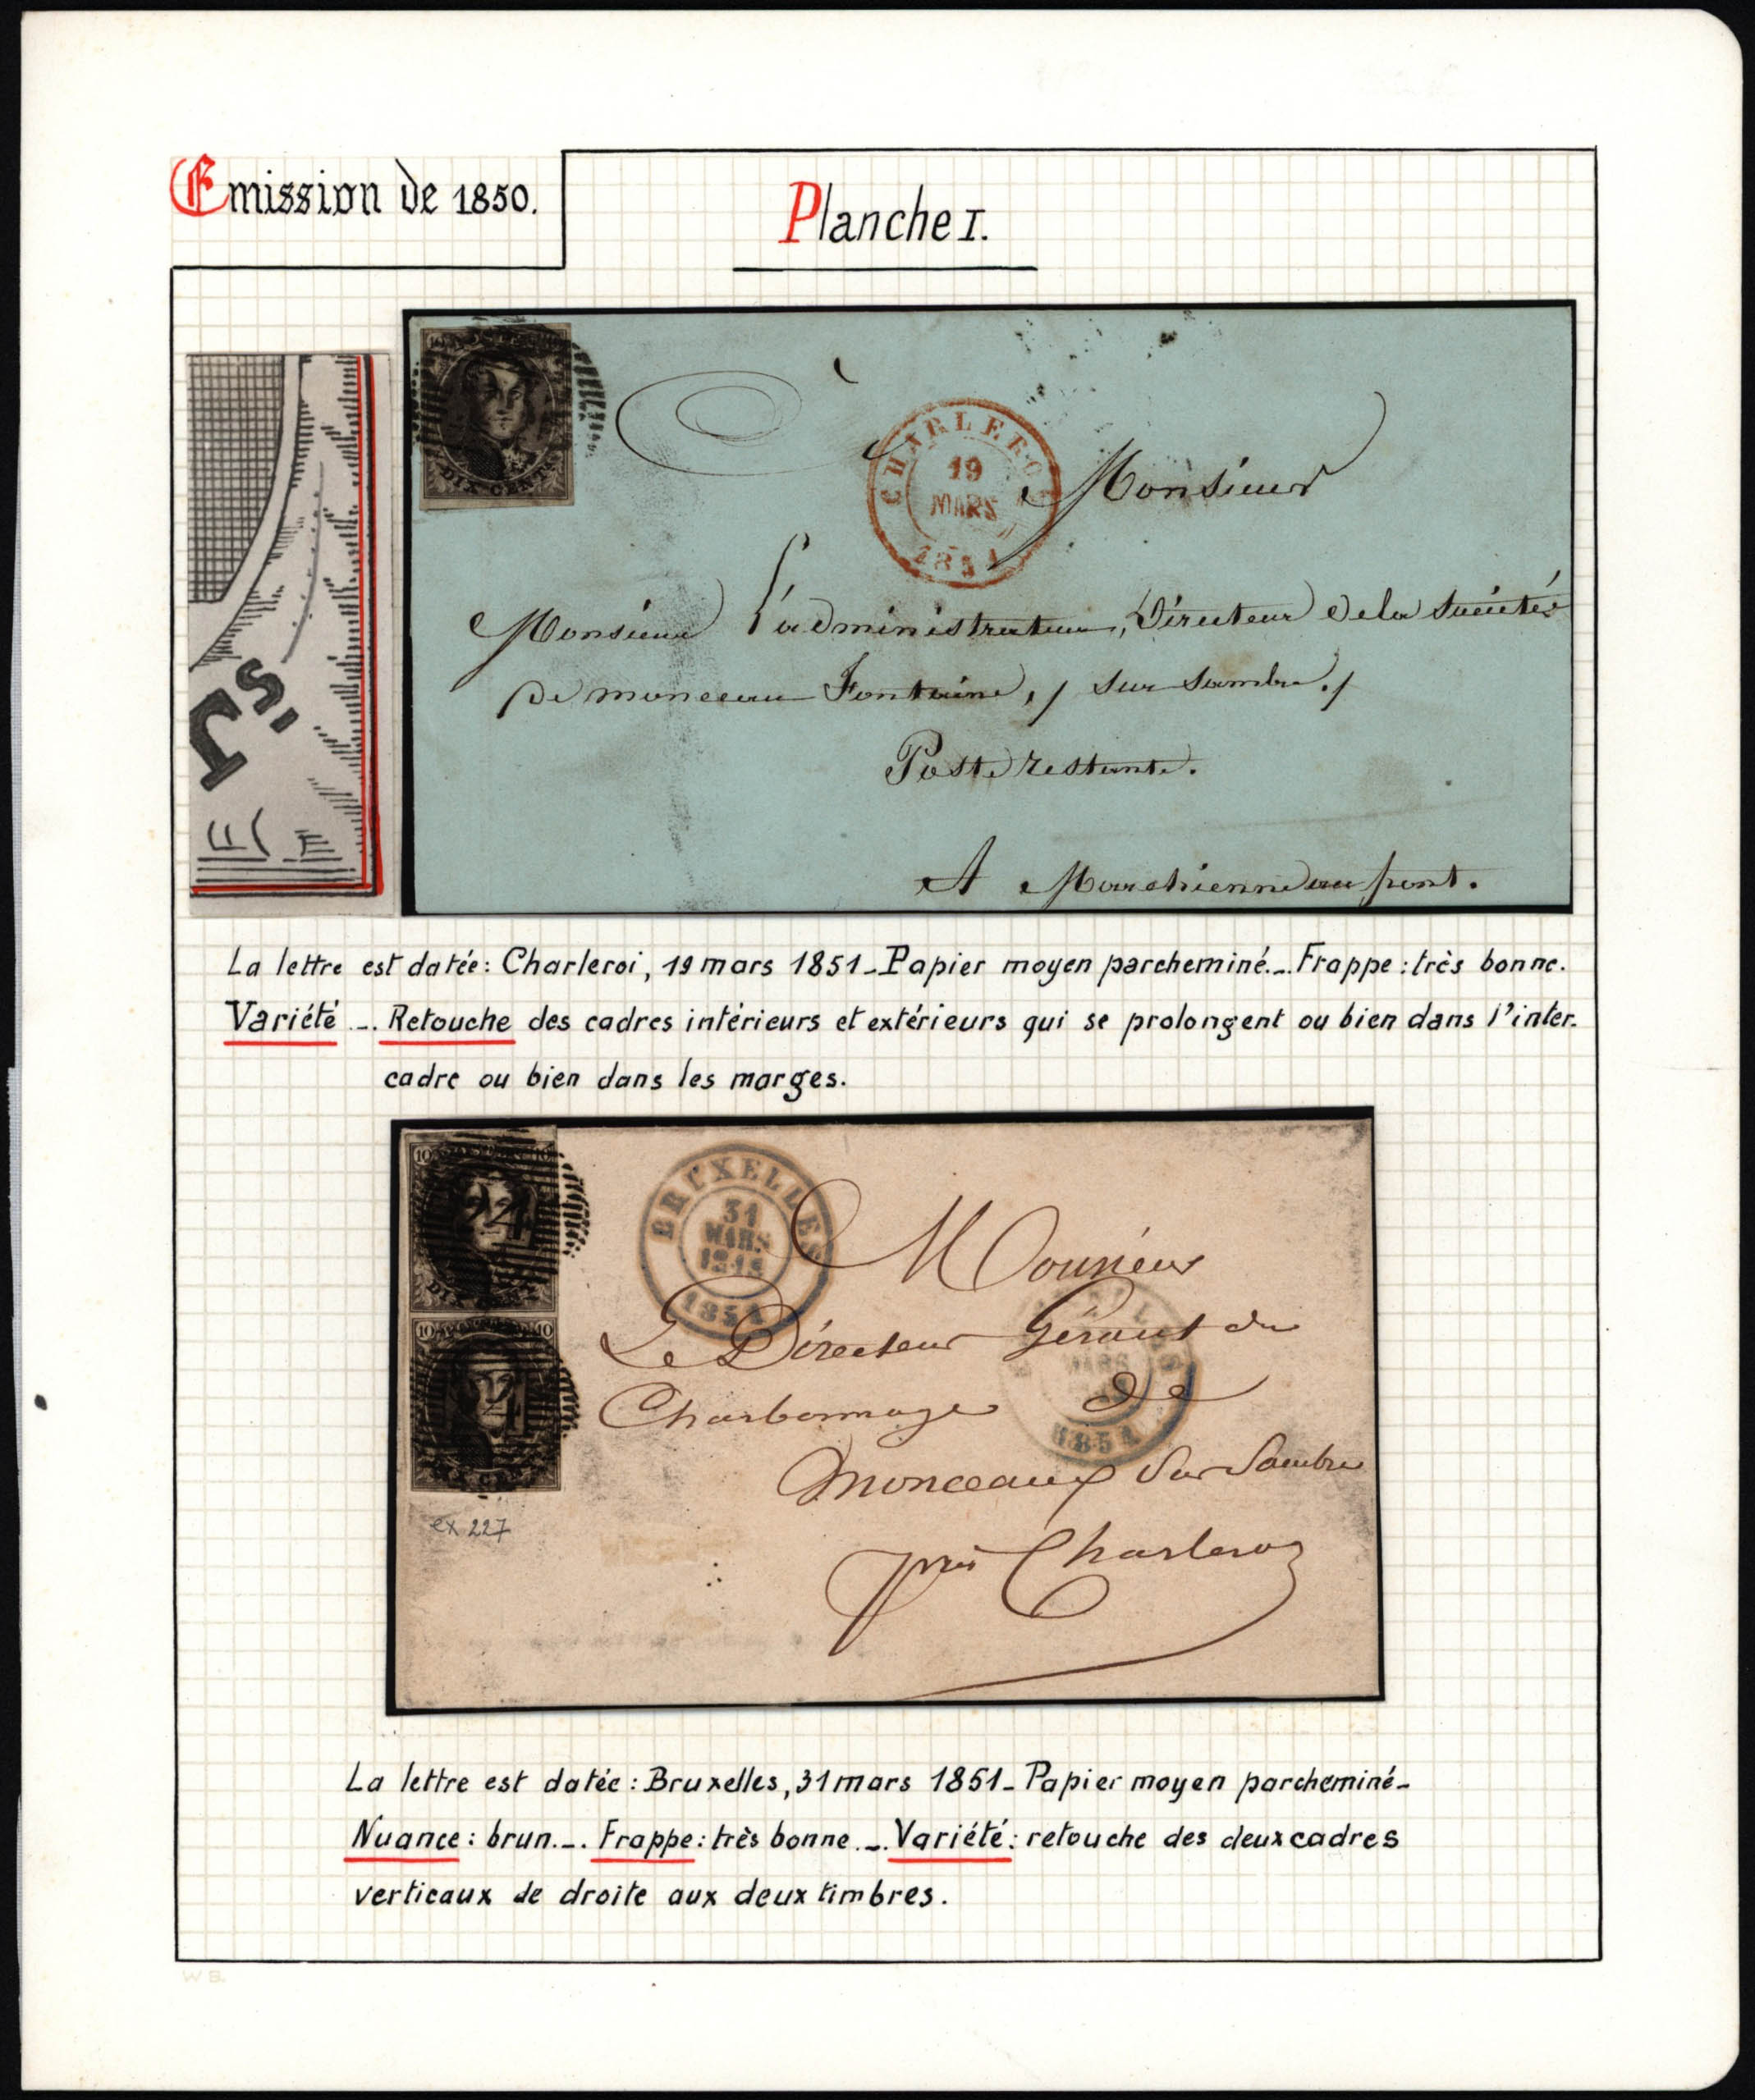 Emission de 1850.
Planche I.
DIX CENTS
CHARLEROI
19
MARS
1851
Monsieur
Monsieur l'administrateur, Directeur de la Société
de monceau Fontaine, / sur Sambre, /
Poste restante.
A Marchienne au pont.
La lettre est datée : Charleroi, 19 mars 1851 _ Papier moyen parcheminé. _ Frappe : très bonne.
Variété _. Retouche des cadres intérieurs et extérieurs qui se prolongent ou bien dans l'inter.
cadre ou bien dans les marges.
10
24
DIX
10 10
24
BRUXELLES
31
MARS
1851
Monsieur
Le Directeur Gérant du
Charbonnage de
Monceaux Sur Sambre
près Charleroy
MARS
1851
ex 227
La lettre est datée : Bruxelles, 31 mars 1851 _ Papier moyen parcheminé _
Nuance : brun. _. Frappe : très bonne. _. Variété : retouche des deux cadres
verticaux de droite aux deux timbres.
W B.